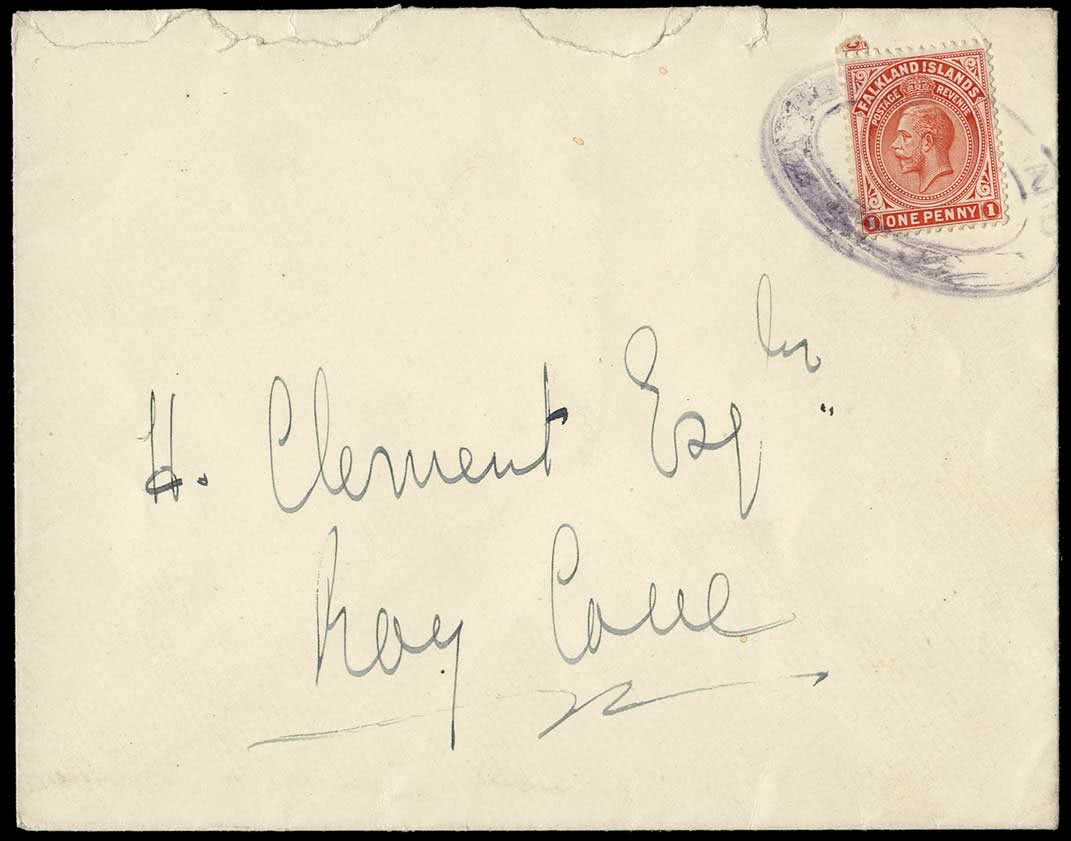 FALKLAND ISLANDS
POSTAGE REVENUE
1 ONE PENNY 1
H. Clement Esq Jnr
Roy Cove